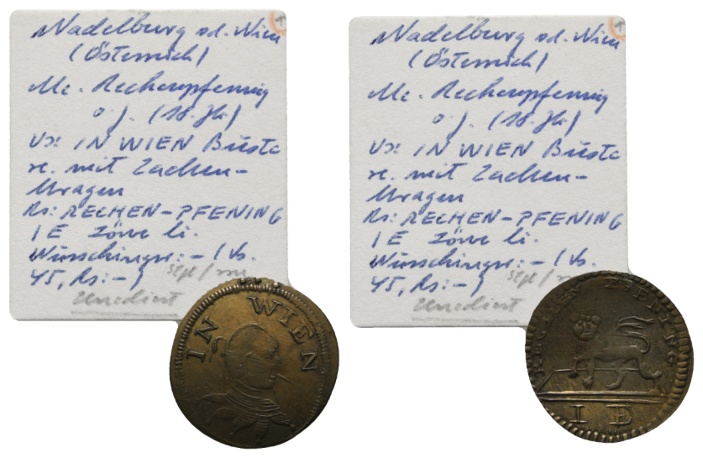 Nadelburg sd. Wien
(Österreich)
Me. Rechenpfennig
o. J. (18. Jh.)
Vs: IN WIEN Büste
re. mit Zacken-
kragen
Rs: RECHEN-PFENING
IE Löwe li.
: - (Vs.
45, Rs: -)
Unediert
IN WIEN
Nadelburg sd. Wien
(Österreich)
Me. Rechenpfennig
o. J. (18. Jh.)
Vs: IN WIEN Büste
re. mit Zacken-
kragen
Rs: RECHEN-PFENING
IE Löwe li.
: - (Vs.
45, Rs: -)
Unediert
I